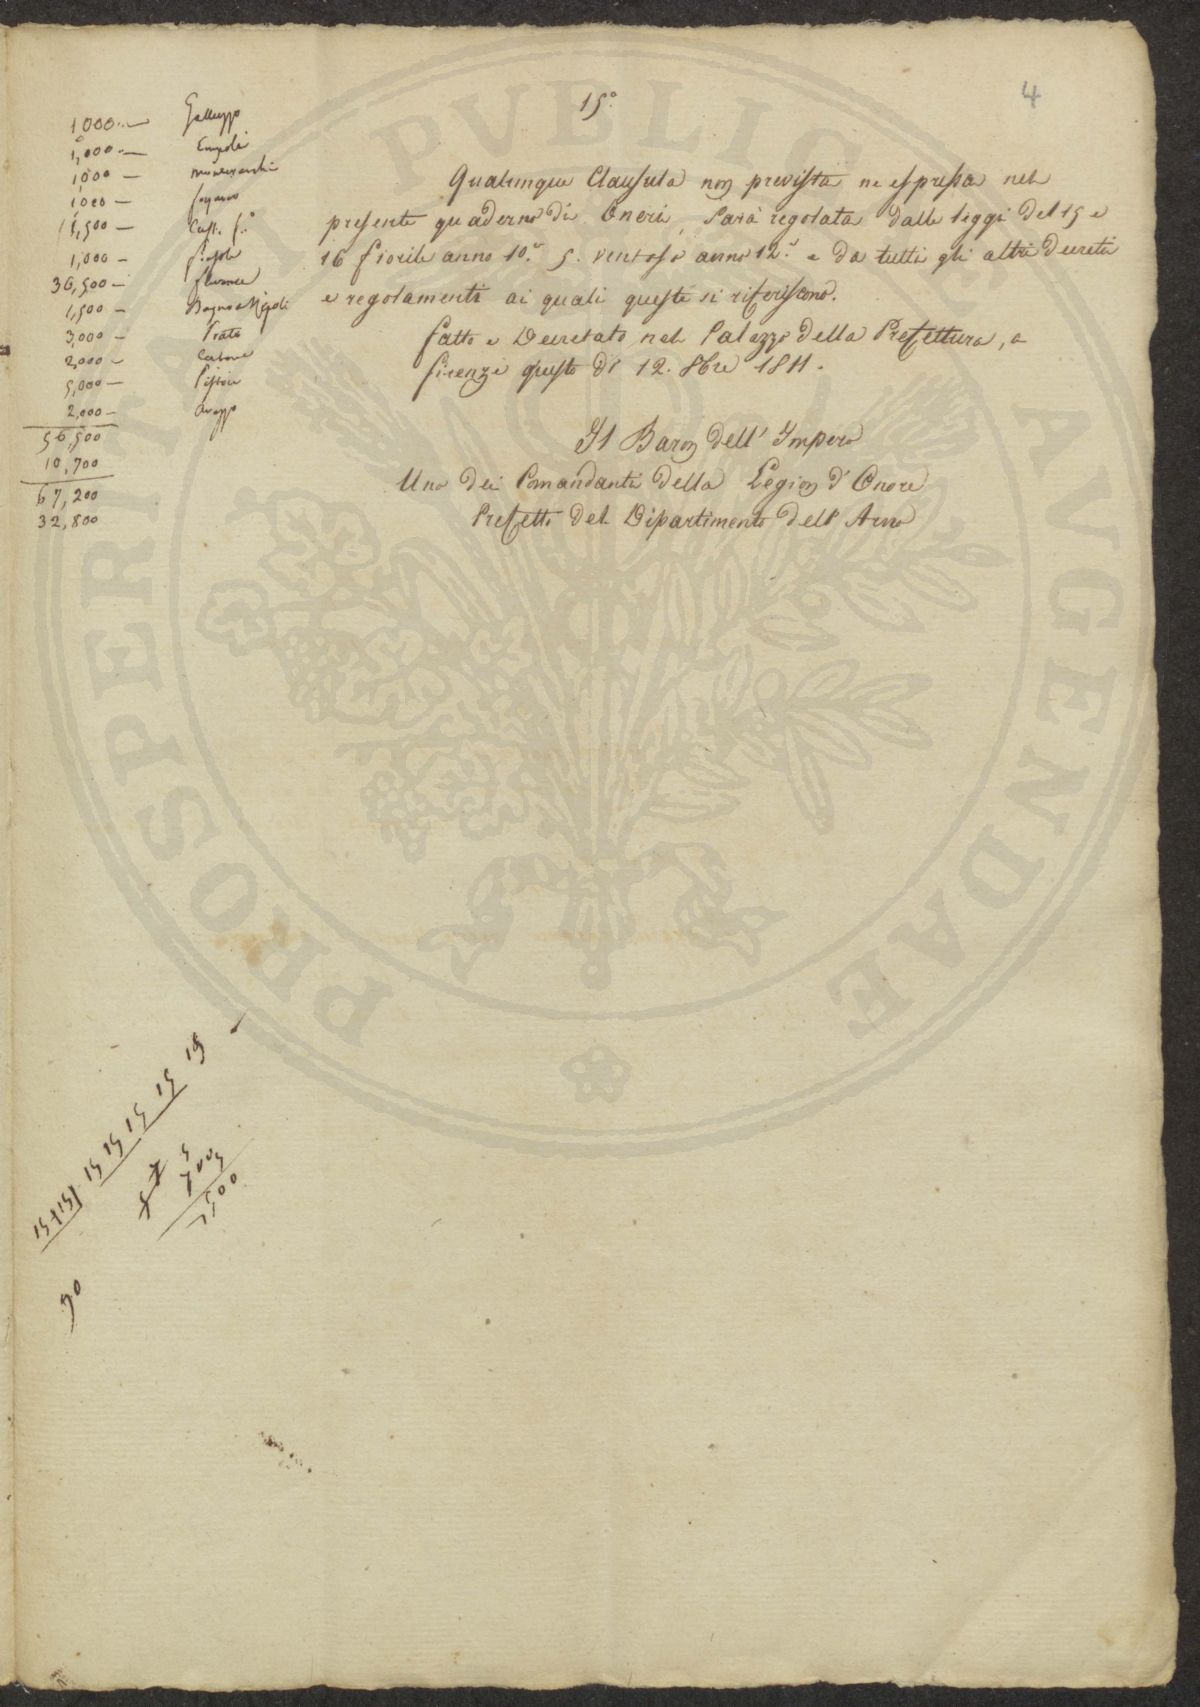 4
15°
1000 — Galluzzo
1,000 — Empoli
1000 — Montevarchi
1,000 —
1,500 — Cast. f.°
1,000 — fiesole
36,500 — florence
1,500 — Bagno a Ripoli
3,000 — Prato
2,000 —
5,000 — Pistoie
2,000 — Arezzo
56,500
10,700
67,200
32,800
Qualunque Clausula non prevista ne espressa nel
presente quaderno di Oneri, sarà regolata dalle leggi del 15 e
16 fiorile anno 10.° 5. ventoso anno 12.° e da tutti gli altri decreti
e regolamenti ai quali queste si riferiscono.
fatto e Decretato nel Palazzo della Prefettura, a
firenze questo dì 12. 8bre 1811.
Il Baron dell' Impero
Uno dei Comandanti della Legion d' Onore
Prefetto del Dipartimento dell' Arno
15 15 15 15 15 15
5
1500
90
PROSPERITATI PVBLICAE AVGENDAE